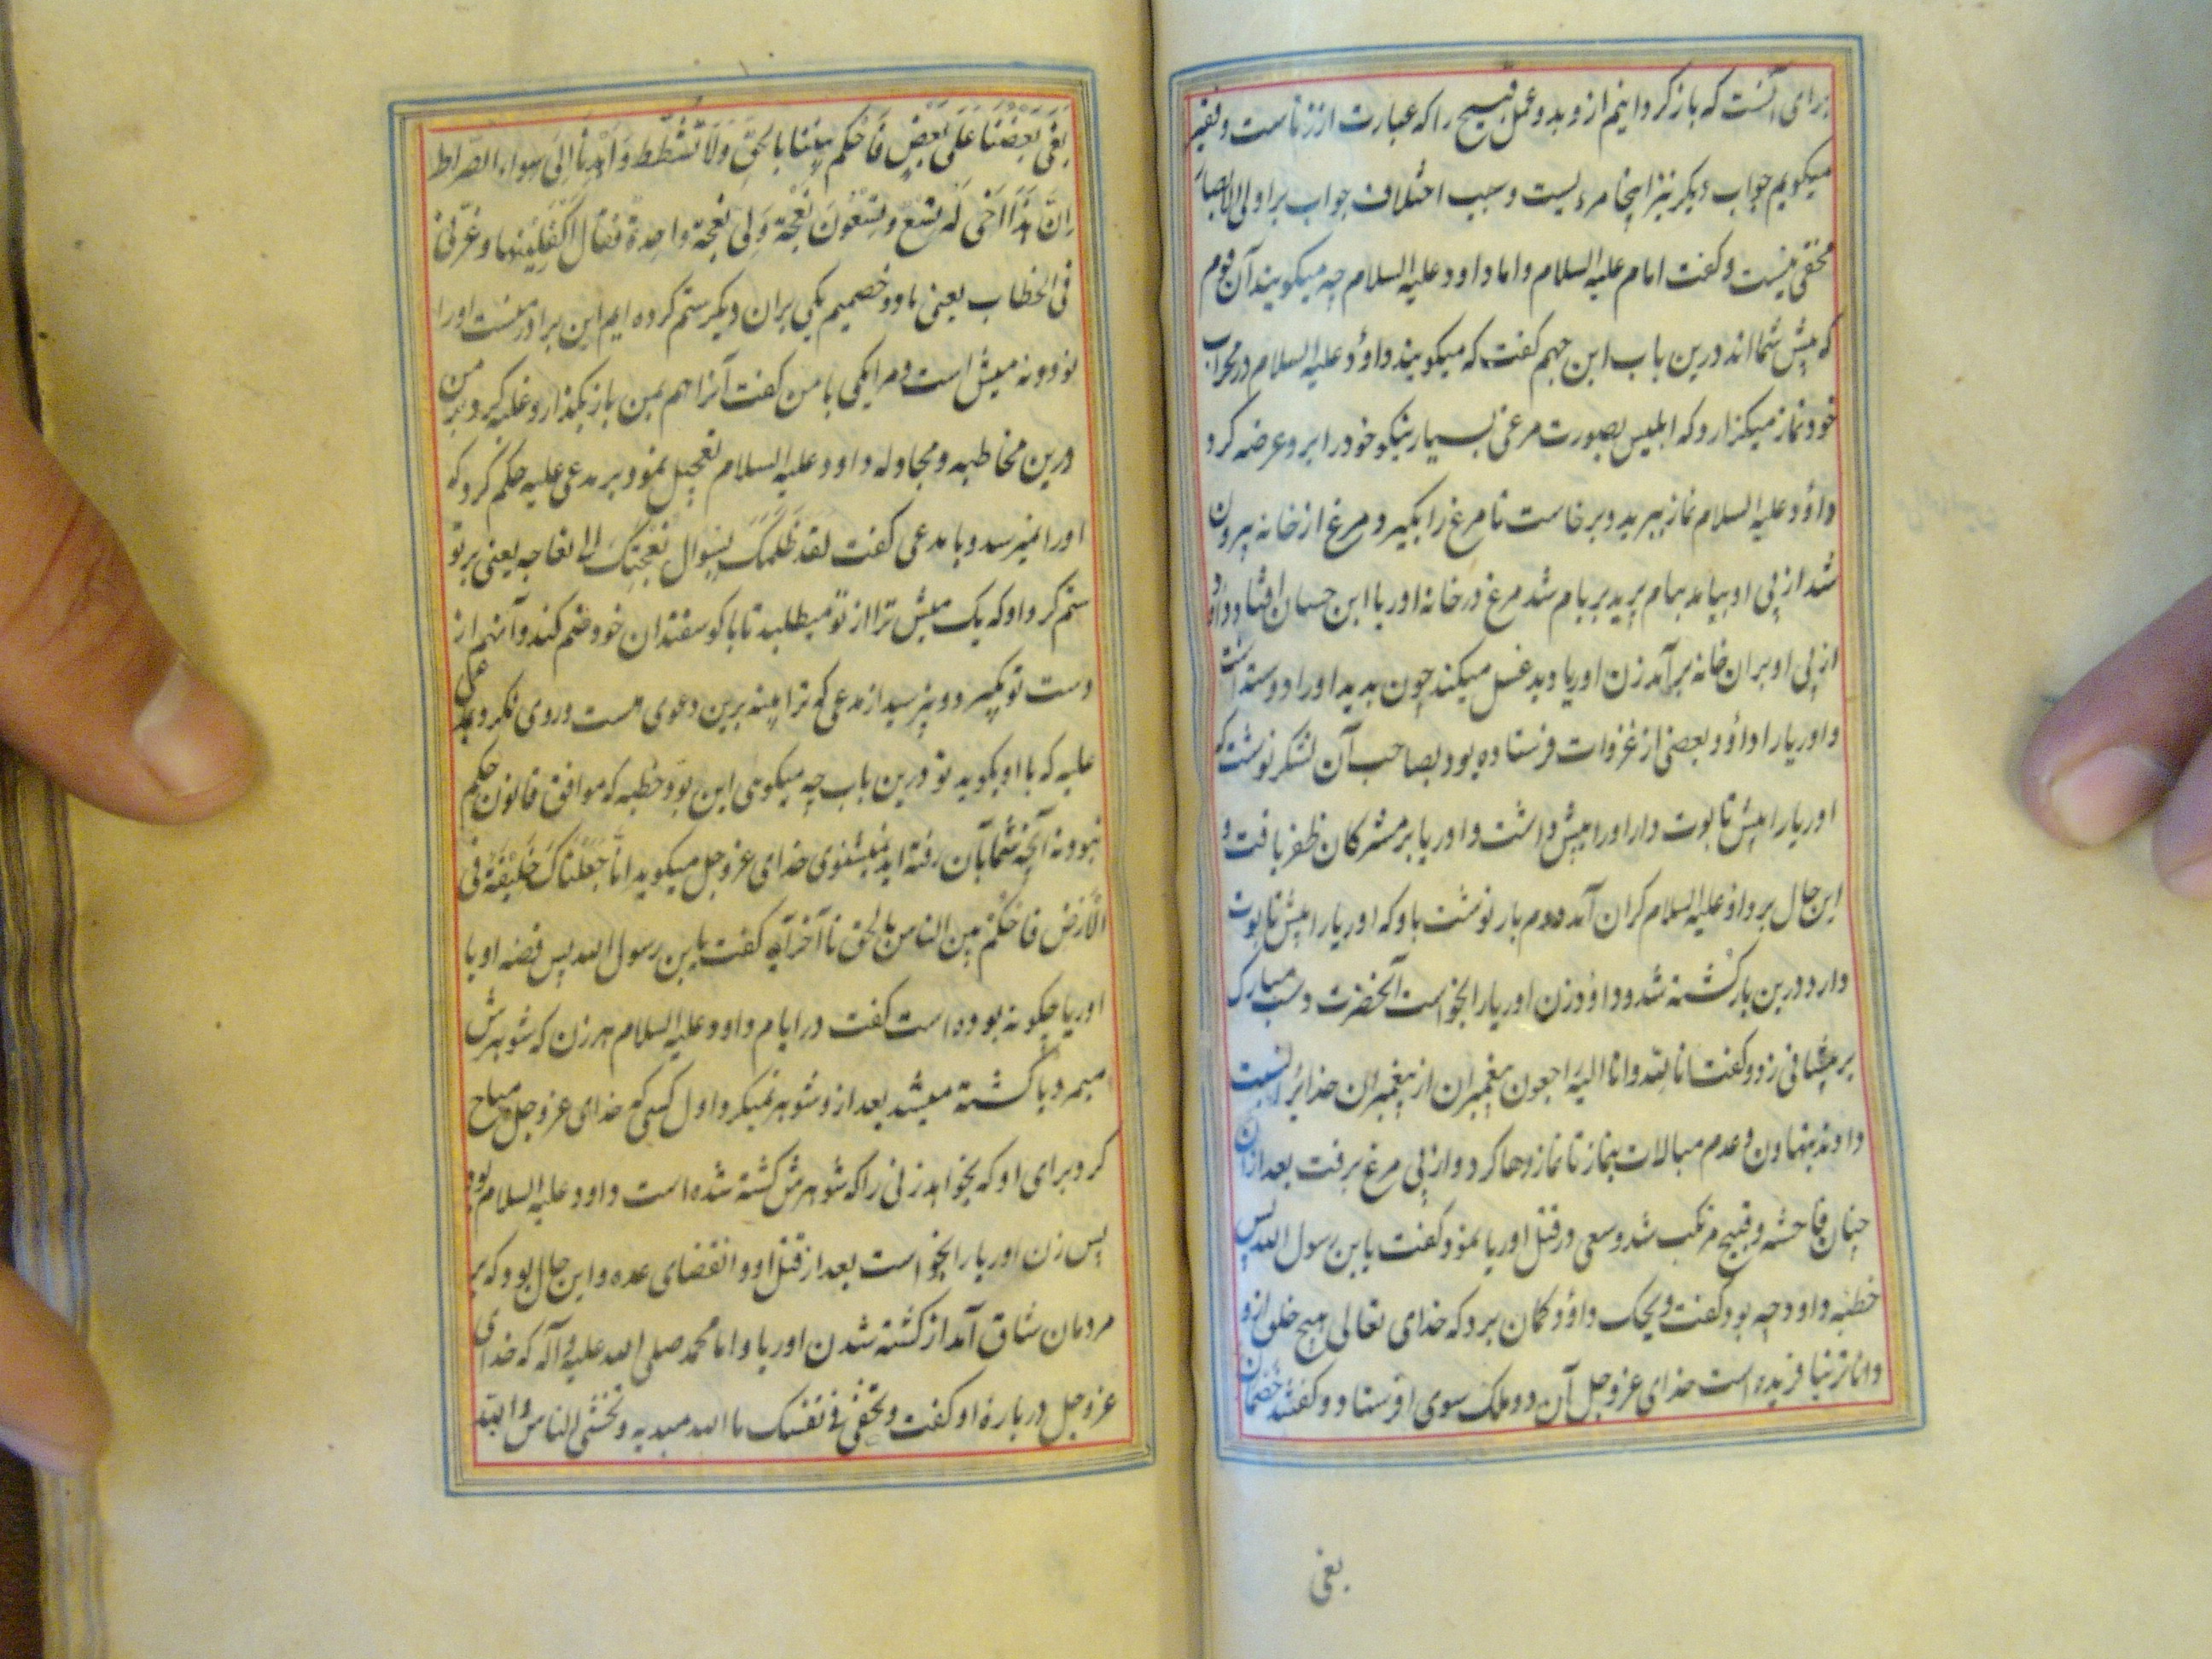 برای آنست که باز کردانیم ازو بد و عمل قبیح را که عبارت از زناست و فقیر
میکویم جواب دیکر نیز اینجا مرویست و سبب اختلاف جواب بر اولی الابصار
مخفی نیست و کفت امام علیه السلام و اما داود علیه السلام چه میکویند آن قوم
که پیش شما اند درین باب ابن جهم کفت که میکویند داؤد علیه السلام در محراب
خود نماز میکزارد که ابلیس بصورت مرغی بسیار نیکو خود را برو عرضه کرد
داؤد علیه السلام نماز ببرید و برخاست تا مرغ را بکیرد مرغ از خانه بیرون
شد از پی او بیامد ببام پرید بر بام شد مرغ در خانه اوریا ابن حسان افتاد و داود
از پی او بران خانه بر آمد زن اوریا دید غسل میکند چون بدید او را دوست داشت
و اوریا را داؤد ببعضی از غزوات فرستاده بود بصاحب آن لشکر نوشت که
اوریا را پیش تابوت دار او را پیش داشت و اوریا بر مشرکان ظفر یافت و
این حال بر داؤد علیه السلام کران آمد دوم بار نوشت باو که اوریا را پیش تابوت
دارد درین بار کشته شد و داؤد زن اوریا را بخواست آنحضرت دست مبارک
بر پیشانی زد و کفت انا لله و انا الیه راجعون پیغمبران از پیغمبران خدایرا نسبت
دادند بتهاون و عدم مبالات بنماز تا نماز رها کرد و از پی مرغ برفت بعد ازان
چنان فاحشه و قبیح مرتکب شد و سعی در قتل اوریا نمود کفت یابن رسول الله پس
خطئه داود چه بود کفت ویحک داؤد کمان برد که خدای تعالی هیچ خلق ازو
داناتر نیافریده است خدای عزوجل آن دو ملک سوی او فرستاد و کفتند خصمان
بغی
بَغَی بَعْضُنَا عَلَی بَعْضٍ فَاحْکُم بَیْنَنَا بِالحَقِّ وَلَا تُشْطِطْ وَاهْدِنَا اِلَی سواء الصّراط
اِنَّ هٰذَا اَخِی لَهُ تِسْعٌ وَ تِسْعُونَ نَعْجَة وَلِیَ نَعْجَة واحِدة فَقالَ اَکْفِلْنِیها و عَزَّنی
فی الخطاب یعنی ما دو خصمیم یکی بران دیکر ستم کرده ایم این برادر منست او را
نود و نه میش است و مرا یکی با من کفت آنرا هم بمن باز بکذار و غلبه کرد بر من
درین مخاطبه و مجادله داود علیه السلام تعجیل نمود و بر مدعی علیه حکم کرد که
او را نمیرسد و با مدعی کفت لقد ظلمک بسوال نعجتک الی نعاجه یعنی بر تو
ستم کرد او که یک میش ترا از تو میطلبد تا با کوسفندان خود ضم کند و آنهم از
دست تو بکیرد و نپرسید از مدعی که ترا بینه برین دعوی هست و روی نکرد بمدعی
علیه که با او بکوید تو درین باب چه میکوئی این بود خطئه که موافق قانون حکم
نبود نه آنچه شما بآن رفته اید نمیشنوی خدای عزوجل میکوید انا جَعَلْناکَ خَلِیفَة فی
الارض فاحْکُم بین الناس بالحق تا آخر آیه کفت یابن رسول الله پس قصه او با
اوریا چکونه بوده است کفت در ایام داود علیه السلام هر زن که شوهرش
میمرد یا کشته میشد بعد ازو شوهر نمیکرد اول کسی که خدای عزوجل مباح
کرد برای او که بخواهد زنی را که شوهرش کشته شده است داود علیه السلام بود
پس زن اوریا را بخواست بعد از قتل او و انقضای عده و این حال بود که بر
مردمان شاق آمد از کشته شدن اوریا و اما محمد صلی الله علیه و آله که خدای
عزوجل در بارهٔ او کفت و تخفی فی نفسک ما الله مبدیه و تخشی الناس و الله